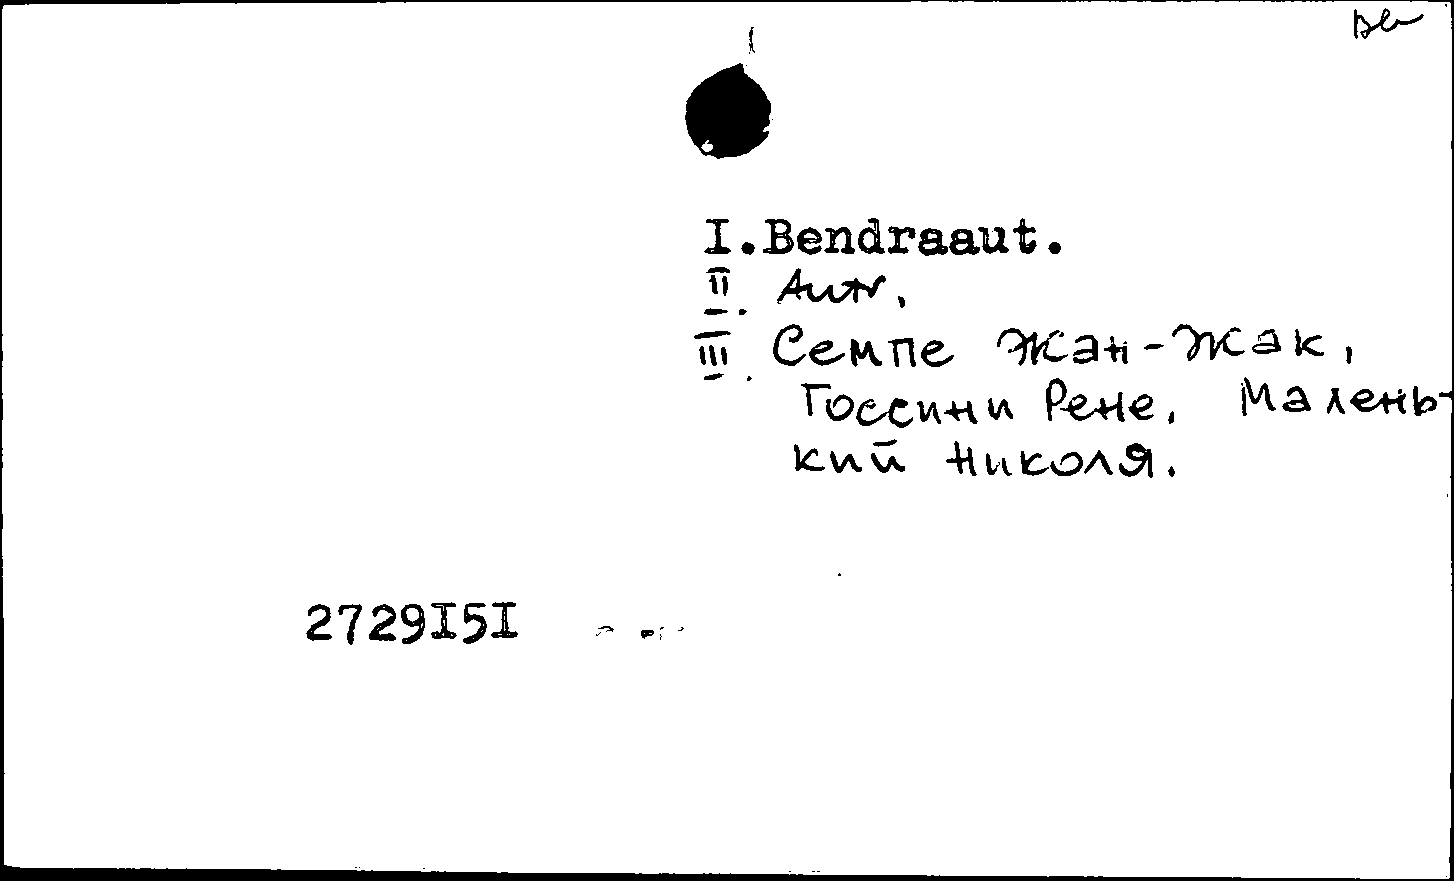 I.Bendraaut.
II. Autr.
III. Семпе Жан-Жак,
Госсини Рене, Малень-
кий Николя.
2729I5I